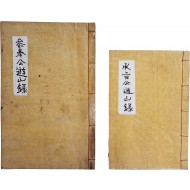 參奉公遊山錄
水言公遊山錄